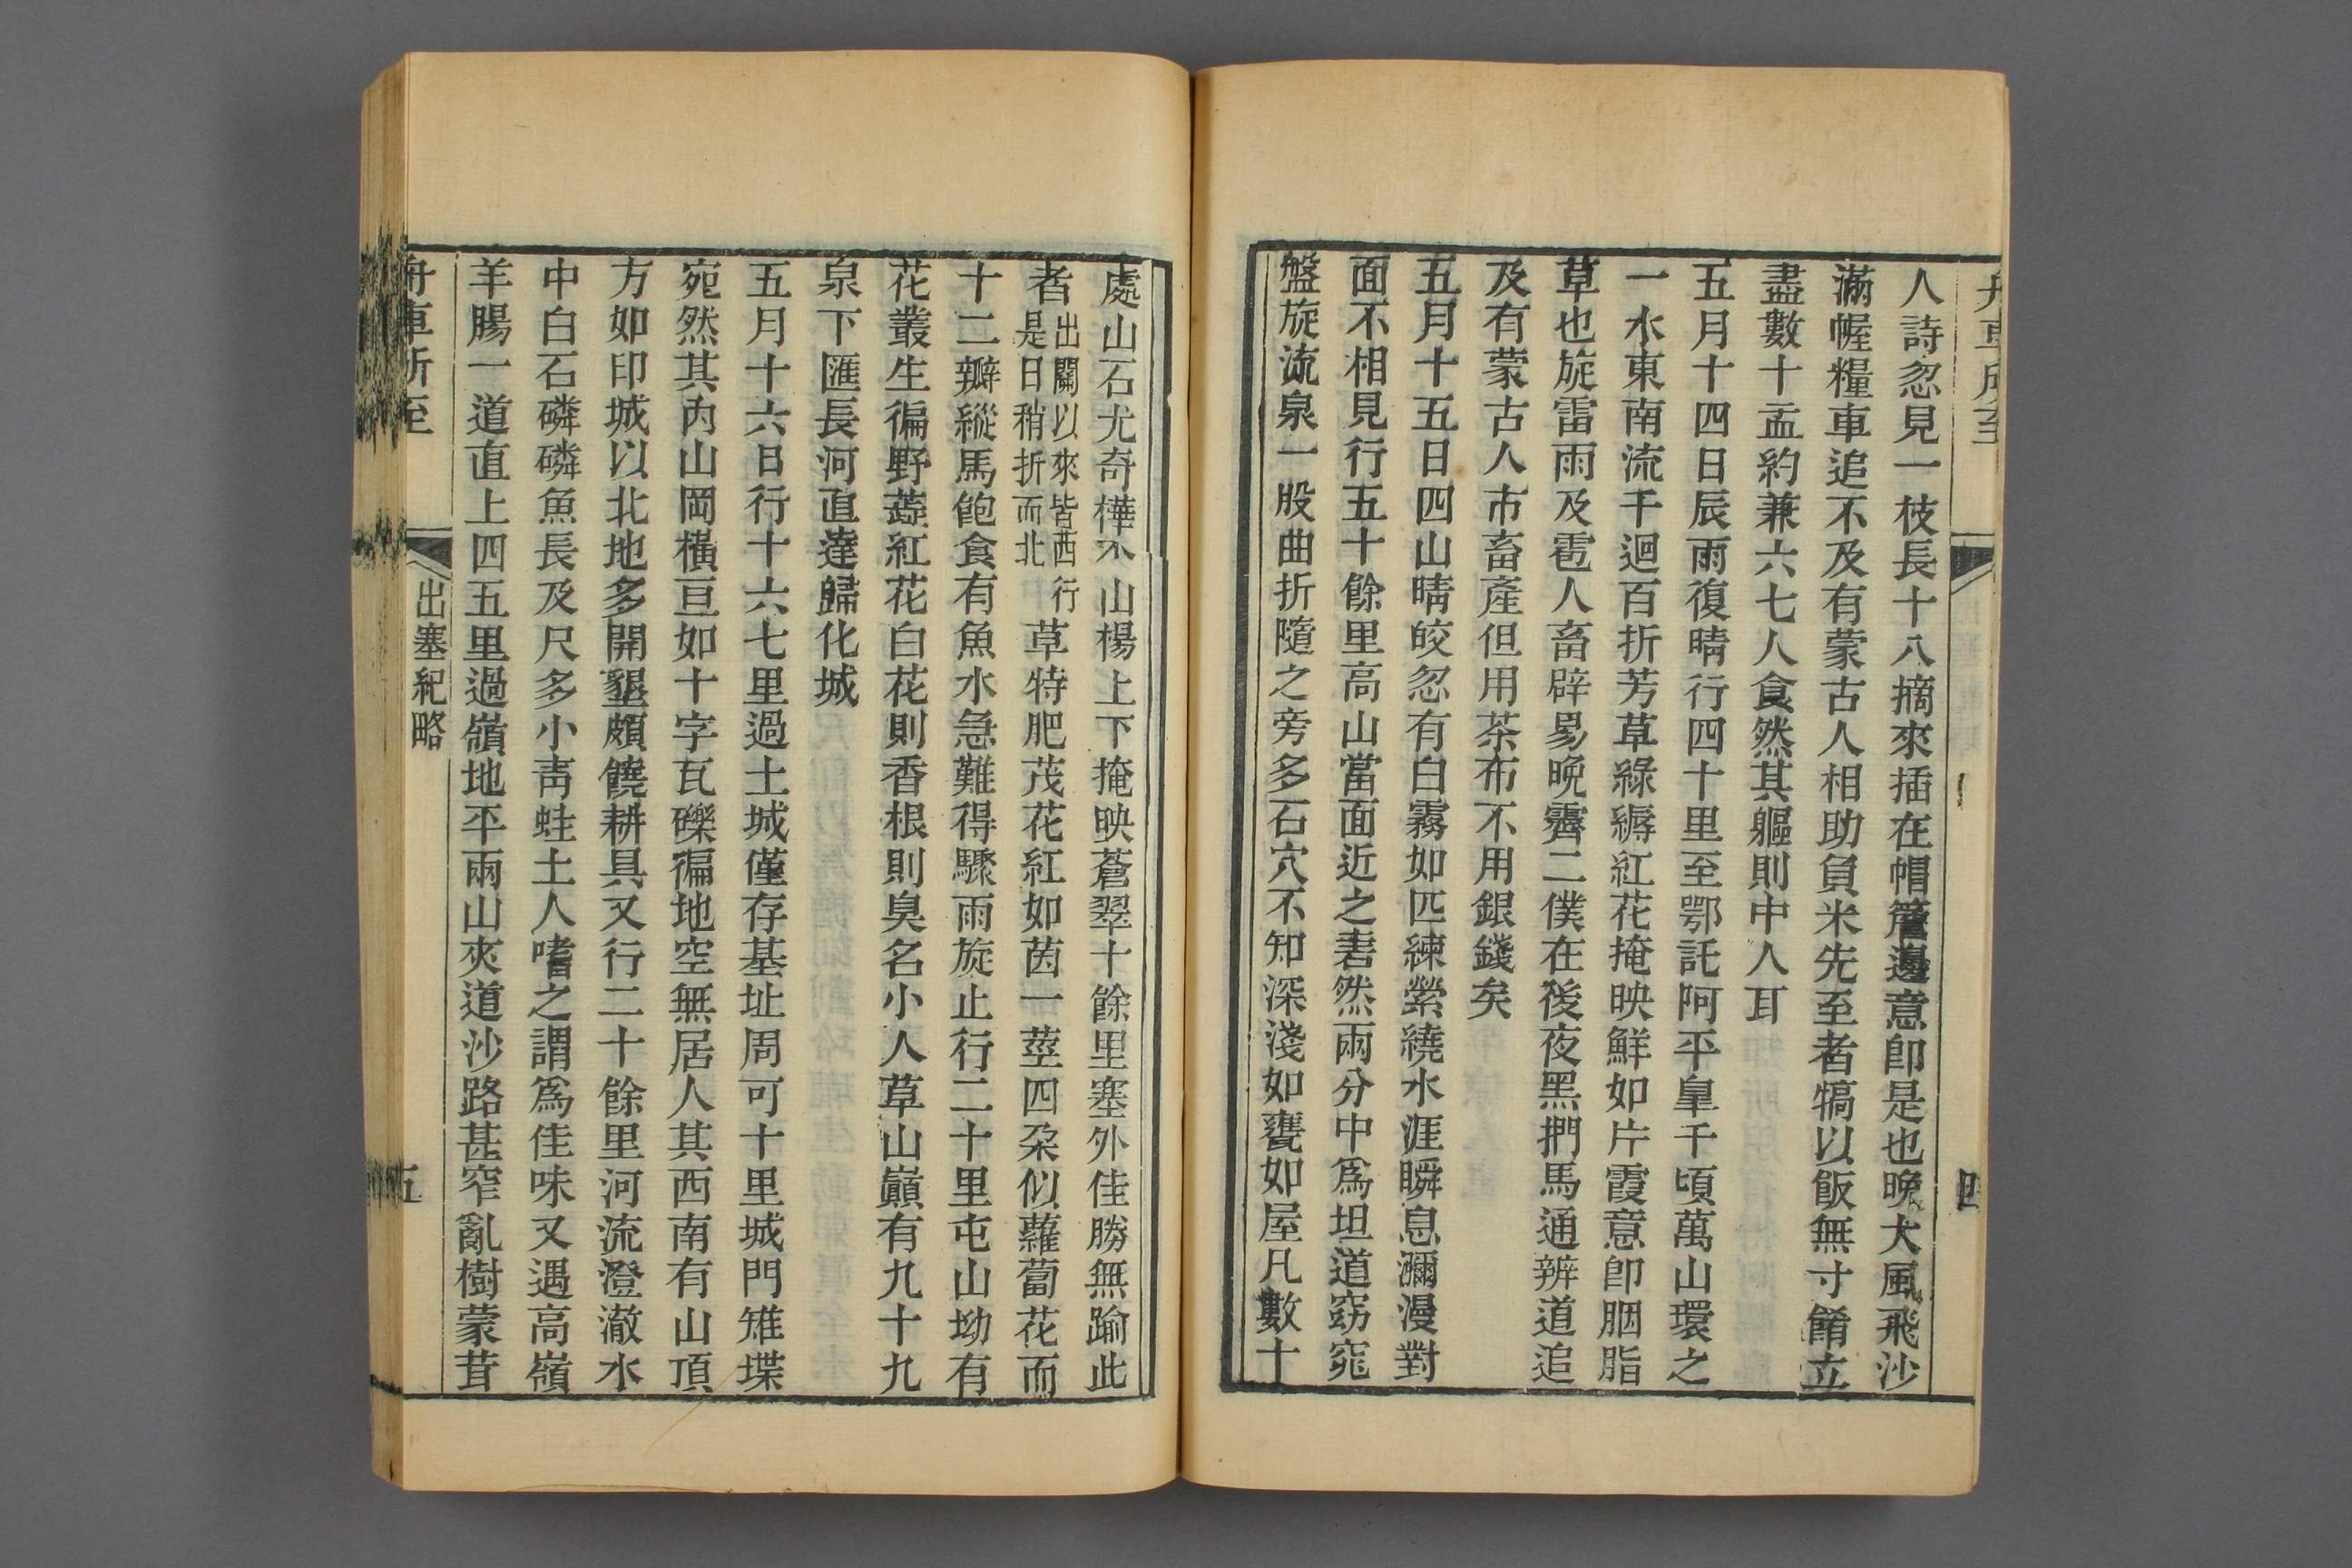 舟車所至
四
人詩忽見一枝長十八摘來插在帽簷邊意卽是也晚大風飛沙
滿幄糧車追不及有蒙古人相助負米先至者犒以飯無寸餚立
盡數十盂約兼六七人食然其軀則中人耳
五月十四日辰雨復晴行四十里至鄂託阿平皐千頃萬山環之
一水東南流千迴百折芳草綠縟紅花掩映鮮如片霞意卽胭脂
草也旋雷雨及雹人畜辟易晚霽二僕在後夜黑捫馬通辨道追
及有蒙古人市畜產但用茶布不用銀錢矣
五月十五日四山晴皎忽有白霧如匹練縈繞水涯瞬息瀰漫對
面不相見行五十餘里高山當面近之砉然兩分中爲坦道窈窕
盤旋流泉一股曲折隨之旁多石穴不知深淺如甕如屋凡數十
處山石尤奇樺木山楊上下掩映蒼翠十餘里塞外佳勝無踰此
者出關以來皆西行是日稍折而北草特肥茂花紅如茵一莖四朶似蘿蔔花而
十二瓣縱馬飽食有魚水急難得驟雨旋止行二十里屯山坳有
花叢生徧野蕋紅花白花則香根則臭名小人草山巓有九十九
泉下匯長河直達歸化城
五月十六日行十六七里過土城僅存基址周可十里城門雉堞
宛然其內山岡橫亘如十字瓦礫徧地空無居人其西南有山頂
方如印城以北地多開墾頗饒耕具又行二十餘里河流澄澈水
中白石磷磷魚長及尺多小靑蛙土人嗜之謂爲佳味又遇高嶺
羊腸一道直上四五里過嶺地平兩山夾道沙路甚窄亂樹蒙茸
舟車所至
出塞紀略
五